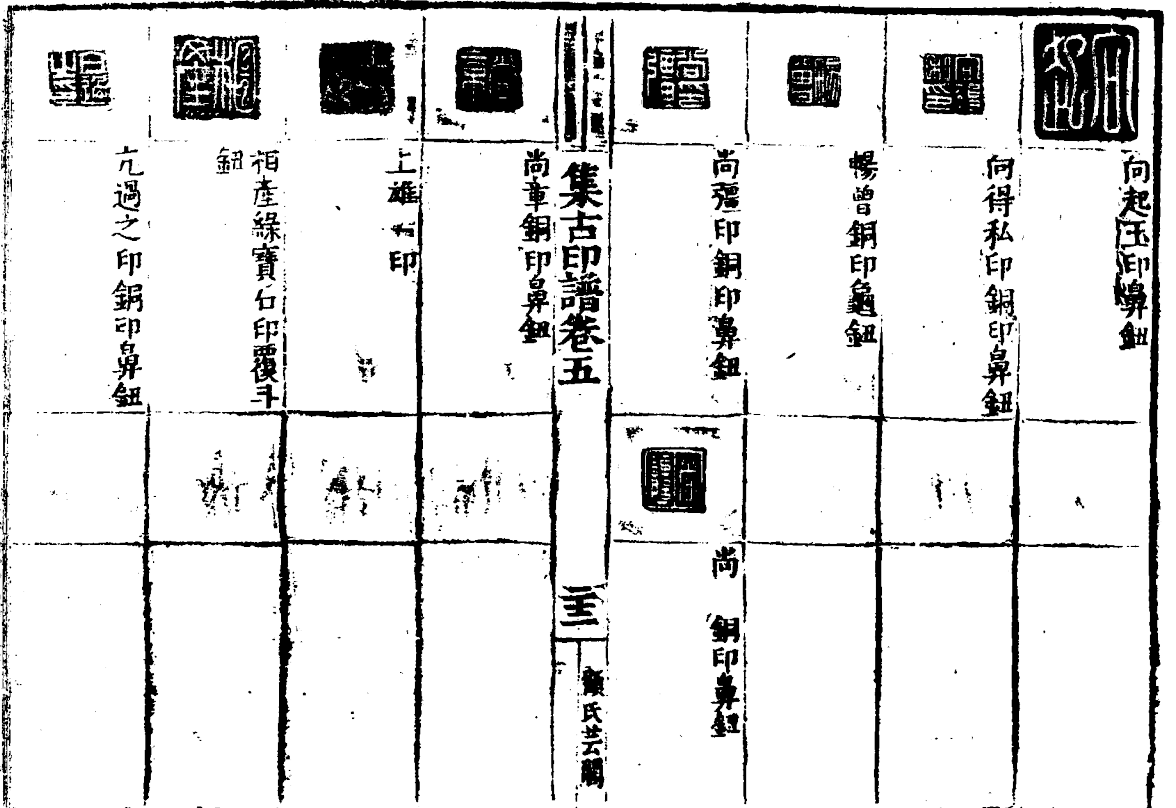 向起玉印鼻鈕
向得私印銅印鼻鈕
暢曾銅印龜鈕
尚彊印銅印鼻鈕
尚 銅印鼻鈕
集古印譜卷五
二十三
顧氏芸閣
尚章銅印鼻鈕
上雄 印
相產綠寶石印覆斗
鈕
亢過之印銅印鼻鈕